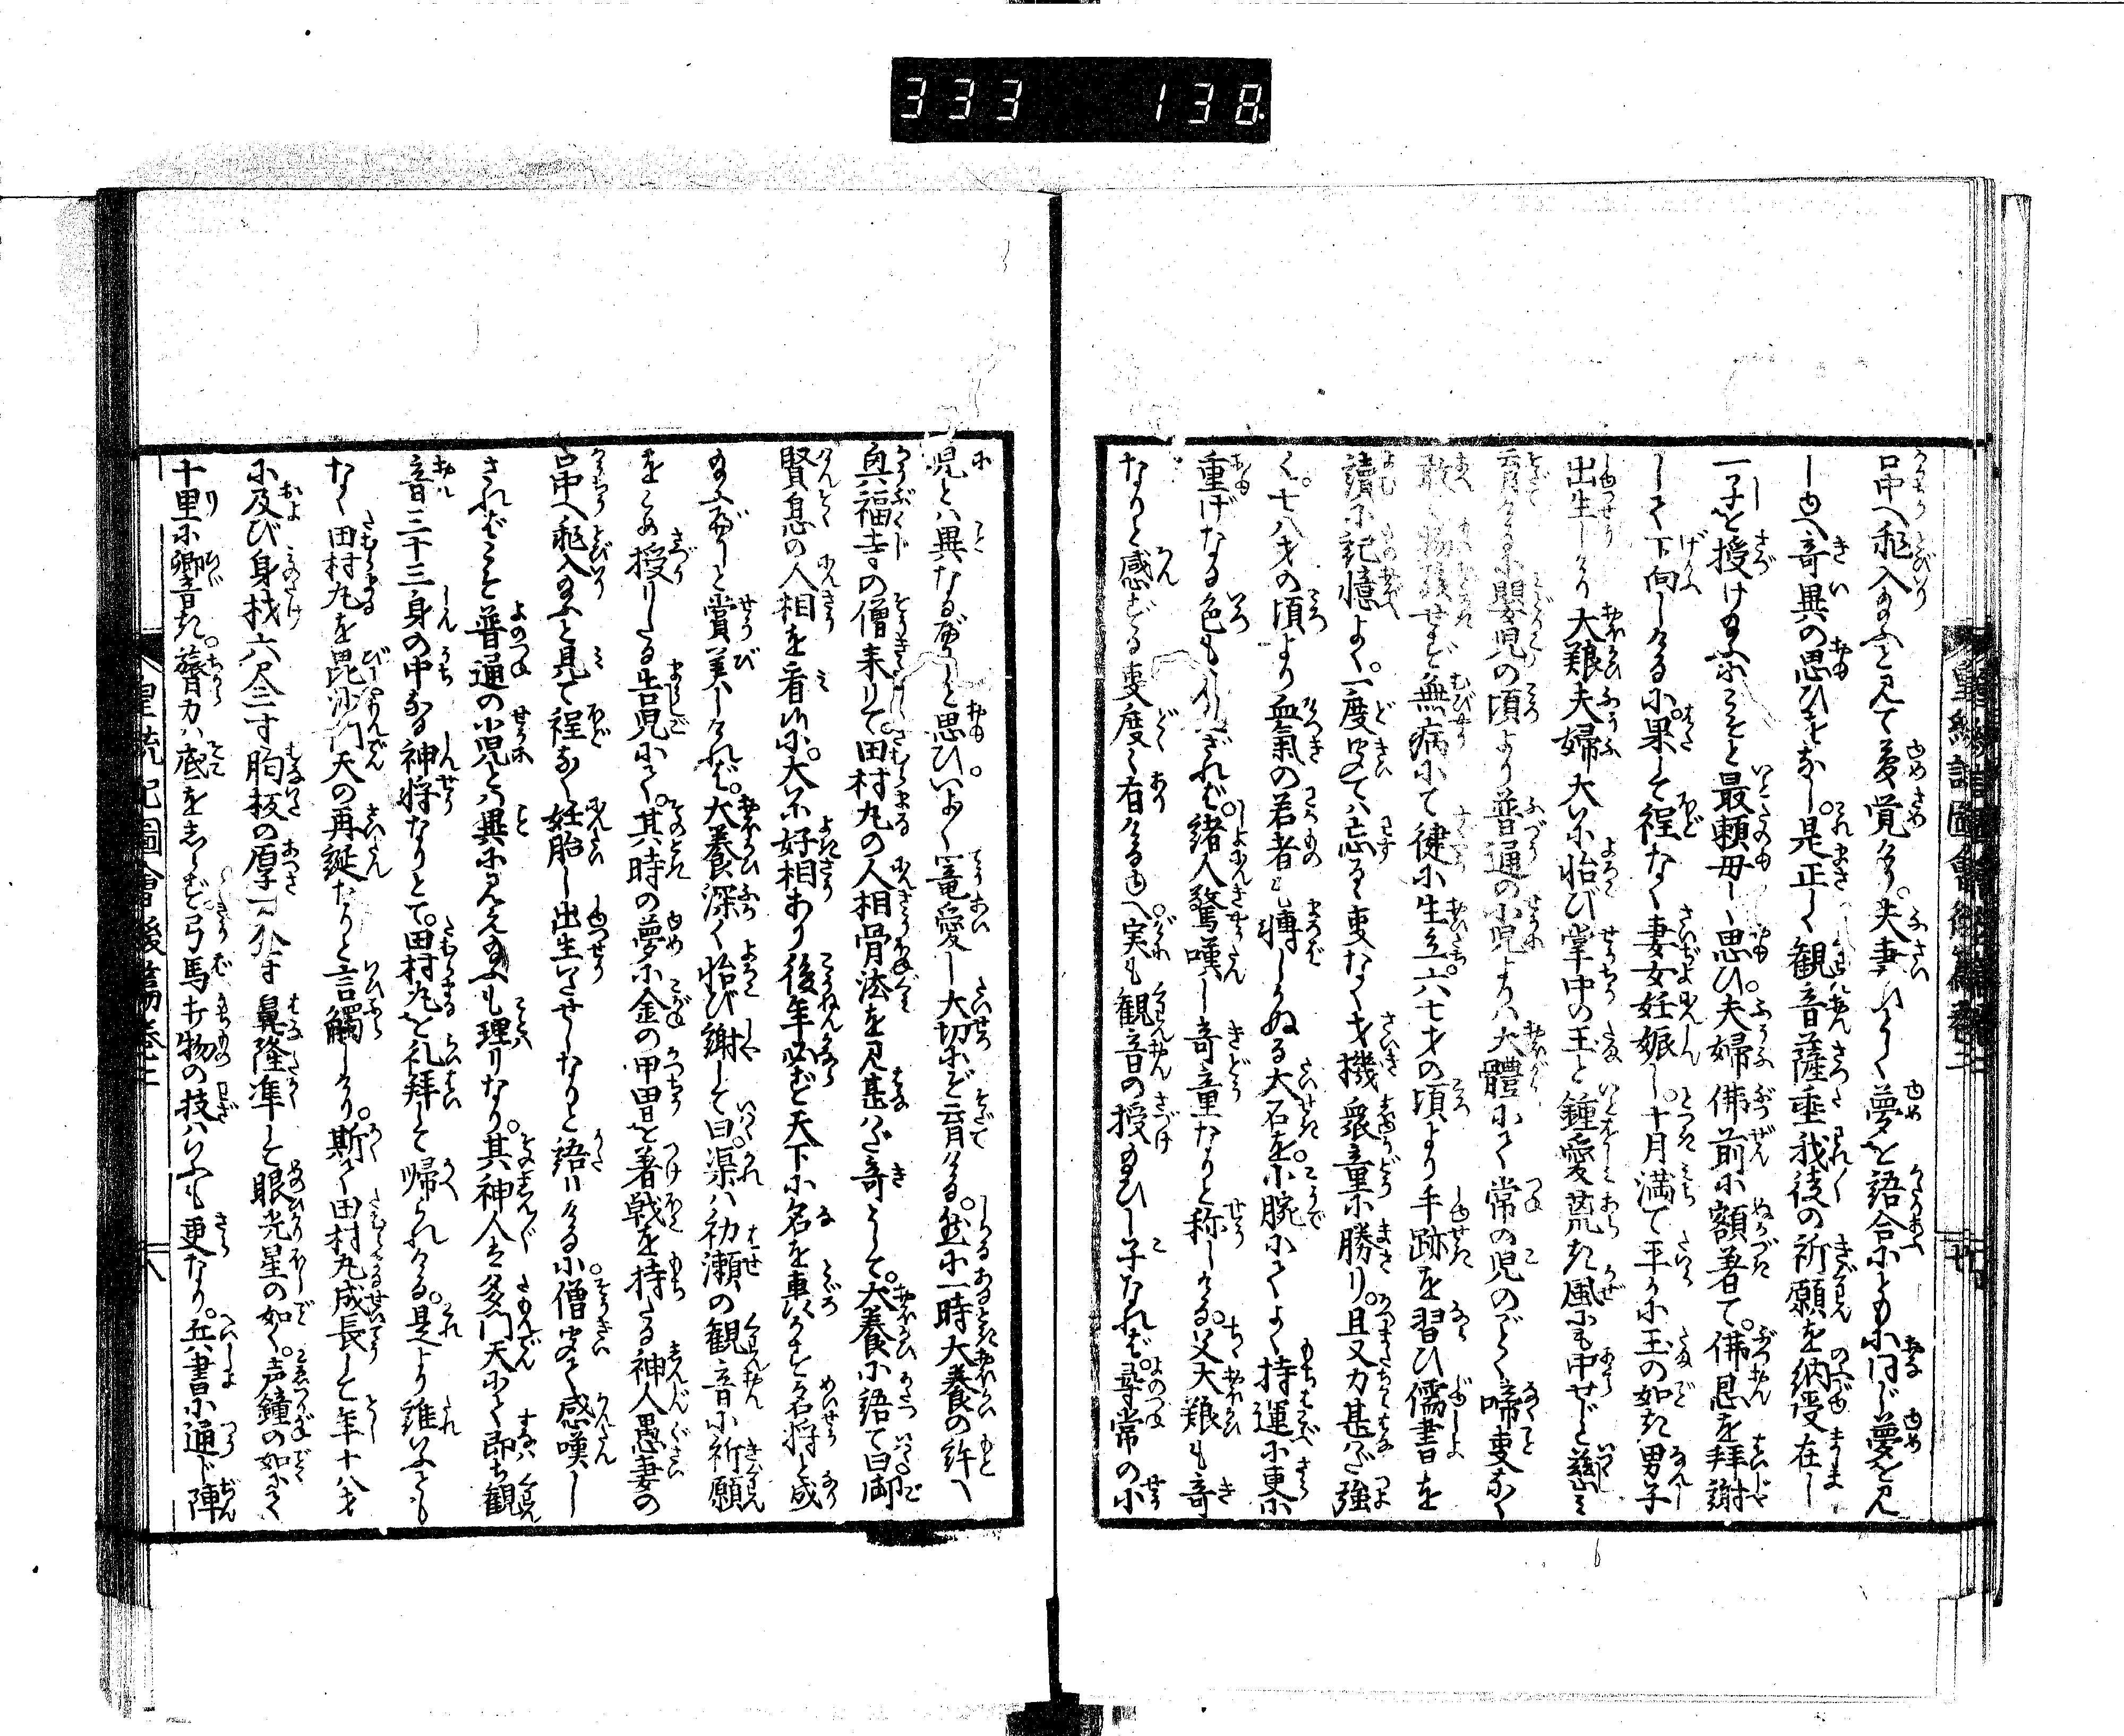 333 138
口中へ飛入給ふと見て夢覚けり。夫妻いそく夢を語合ふにともに同じ夢を見
しゆへ奇異の思ひをなし。是正しく観音薩埵我徒の祈願を納受在し
一子を授け給ふにこそと最頼母しく思ひ。夫婦佛前に額著て。佛恩を拝謝
して下向しけるに。果して程なく妻女妊娠し。十月満て平らかに玉の如き男子
出生しけり大鹿夫婦大に怡び掌中の玉と鍾愛荒き風にも中せじと慈しミ
育けるに嬰児の頃より普通の小児よりハ大體にて常の児のごとく啼事なく
敢て物強せず無病にて健に生立六七才の頃より手跡を習ひ儒書を
讀に記憶よく。一度聞てハ忘るゝ事なく才機衆童に勝り。且又力甚だ強
く。七八才の頃より血氣の若者も轉しかぬる大石を。小腕にてよく持運に更に
重げなる色もなかりざれバ。諸人驚嘆し奇童なりと称しける。父大鹿も奇
なりと感ずる事度々有けるゆへ。実も観音の授給ひし子なれバ。尋常の小
児とハ異なるべしと思ひ。いよく寵愛し大切にぞ育ける。然に一時大養の許へ
興福寺の僧来りて。田村丸の人相骨法を見甚だ奇として。大養に語て曰御
賢息の人相を看るに。大に好相あり後年必ず天下に名を轟かす名将と成
給ふべしと賞美しけれバ。大養深く怡び謝して曰。渠ハ初瀬の観音に祈願
をこめ授りたる告児にて。其時の夢に金の甲冑を著戟を持たる神人愚妻の
口中へ飛入給ふと見て程なく妊胎し出生いたせしなりと語りけるに。僧聞て感嘆し
さればこそ普通の小児とハ異に見え給ふも理りなり。其神人ハ多門天にて即ち観
音三十三身の中なる神将なりとて。田村丸を礼拝して帰られける。是より誰いふとも
なく田村丸を毘沙門天の再誕なりと言觸しけり。斯く田村丸成長して年十八才
に及び身材六尺二寸胸板の厚一尺八寸鼻隆準として眼光星の如く。声鐘の如にて
十里に響き。膂力ハ底をしらず弓馬打物の技ハいふも更なり。兵書に通じ陣
皇統記圖會後篇巻之三